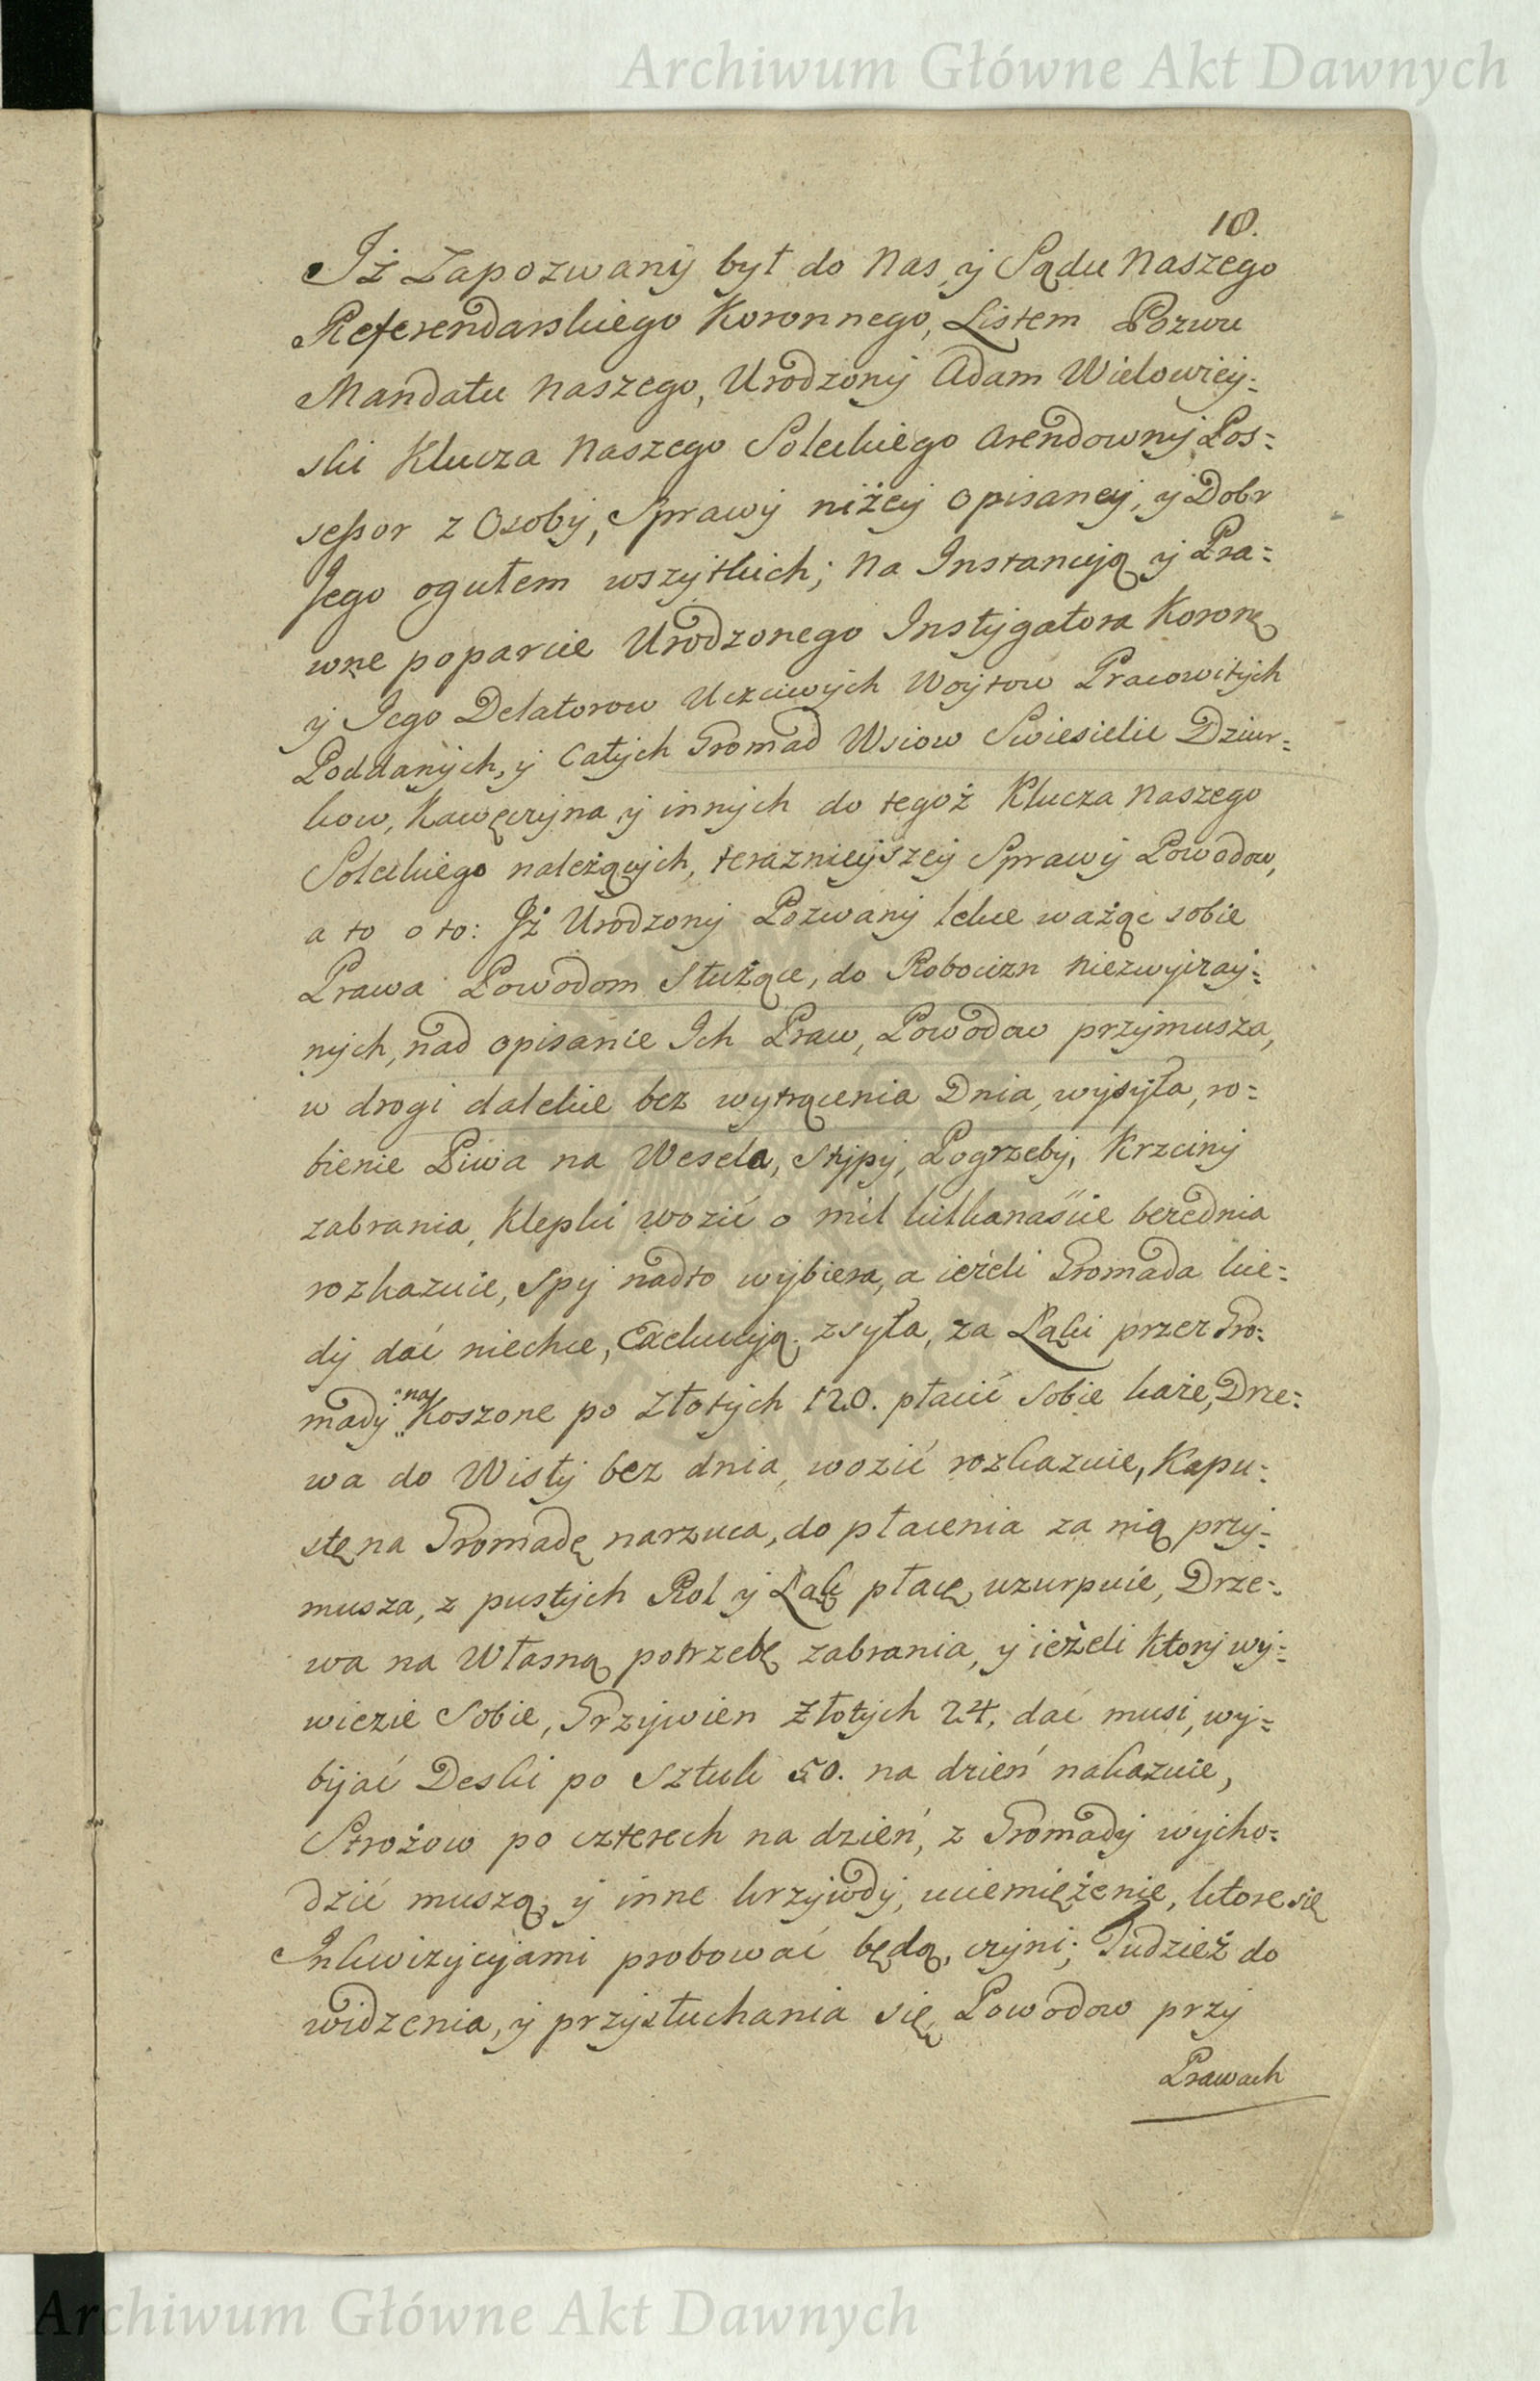 Archiwum Główne Akt Dawnych
10.
Iż Zapozwany był do Nas y Sądu Naszego
Referendarskiego Koronnego, Listem Pozwu
Mandatu Naszego, Urodzony Adam Wielowiey=
ski Klucza Naszego Soleckiego Arendowny Pos=
sessor z Osoby, Sprawy niżey opisaney, y Dobr
Jego ogułem wszystkich; na Instancyją y Pra=
wne poparcie Urodzonego Instygatora Koronę
y Jego Delatorow Uczciwych Woytow Pracowitych
Poddanych, y Całych Gromad Wsiow Swiesielic Dziur=
kow, Kawęczyna y innych do tegoż Klucza Naszego
Soleckiego należących, teraznieyszey Sprawy Powodow,
a to o to: Iż Urodzony Pozwany lekce ważąc sobie
Prawa Powodom służące, do Robocizn niezwyczay=
nych, nad opisanie Ich Praw, Powodow przymusza,
w drogi dalekie bez wytrącenia Dnia, wysyła, ro=
bienie Piwa na Wesela, Stypy, Pogrzeby, Krzciny
zabrania, Klepki wozić o mil kilkanaście bezednia
rozkazuie, Spy nadto wybiera, a ieżeli Gromada kie=
dy dać niechce, Exekucyją zsyła, za Łąki przez Gro=
mady na Koszone po Złotych 120. płacić sobie każe, Drze=
wa do Wisły bez dnia, wozić rozkazuie, Kapu=
stę na Gromadę narzuca, do płacenia za nią przy=
musza, z pustych Rol y Łąk płacę uzurpuie, Drze=
wa na Własną potrzebę zabrania, y ieżeli Ktory wy=
wiezie Sobie, Grzywien Złotych 24, dać musi, wy=
bijać Deski po Sztuk 50. na dzień nakazuie,
Strożow po czterech na dzień, z Gromady wycho=
dzić muszą, y inne krzywdy, uciemiężenie, ktore się
Inkwizycyjami probować będą, czyni; Tudzież do
widzenia, y przysłuchania się Powodow przy
Prawach
Archiwum Główne Akt Dawnych